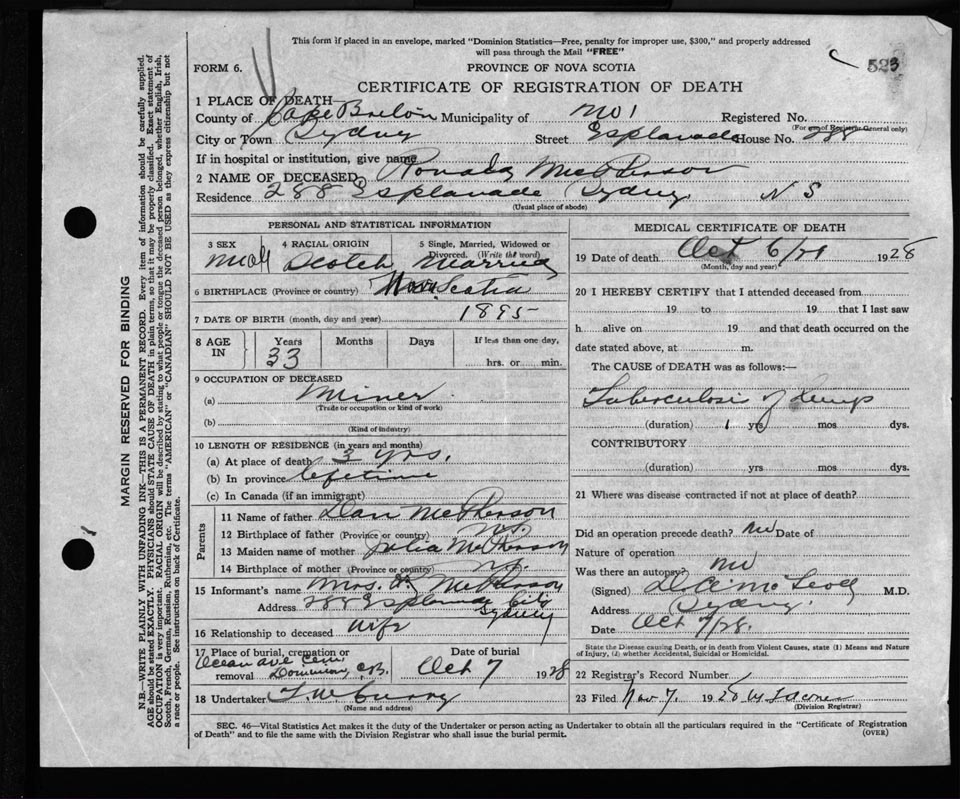 This form if placed in an envelope, marked "Dominion Statistics—Free, penalty for improper use, $300," and properly addressed
will pass through the Mail "FREE"
523
FORM 6.
PROVINCE OF NOVA SCOTIA
CERTIFICATE OF REGISTRATION OF DEATH
1 PLACE OF DEATH—
County of Cape Breton Municipality of No 1 Registered No.
(For use of Registrar General only)
City or Town Sydney Street Esplanade House No. 288
If in hospital or institution, give name
2 NAME OF DECEASED Ronald McPherson
Residence 288 Esplanade Sydney N S
(Usual place of abode)
PERSONAL AND STATISTICAL INFORMATION
3 SEX 4 RACIAL ORIGIN 5 Single, Married, Widowed or
Divorced. (Write the word)
Male Scotch Married
6 BIRTHPLACE (Province or country) Nova Scotia
7 DATE OF BIRTH (month, day and year) 1895
8 AGE IN Years Months Days If less than one day,
33 hrs. or min.
9 OCCUPATION OF DECEASED
(a) Miner
(Trade or occupation or kind of work)
(b)
(Kind of industry)
10 LENGTH OF RESIDENCE (in years and months)
(a) At place of death 3 yrs.
(b) In province lifetime
(c) In Canada (if an immigrant)
Parents
11 Name of father Dan McPherson
12 Birthplace of father (Province or country) N.S.
13 Maiden name of mother Julia McPherson
14 Birthplace of mother (Province or country) N.S.
15 Informant's name Mrs. McPherson
Address 288 Esplanade City
Sydney
16 Relationship to deceased Wife
17 Place of burial, cremation or Date of burial
Ocean ave Cem
removal Dominion, C.B. Oct 7 1928
18 Undertaker Curry
(Name and address)
MEDICAL CERTIFICATE OF DEATH
19 Date of death Oct 6/28 1928
(Month, day and year)
20 I HEREBY CERTIFY that I attended deceased from
19 to 19 that I last saw
h alive on 19 and that death occurred on the
date stated above, at m.
The CAUSE of DEATH was as follows:—
Tuberculosis of Lungs
(duration) 1 yrs mos dys.
CONTRIBUTORY
(duration) yrs mos dys.
21 Where was disease contracted if not at place of death?
Did an operation precede death? No Date of
Nature of operation
Was there an autopsy? No
(Signed) McLeod M.D.
Address Sydney.
Date Oct 7/28.
State the Disease causing Death, or in death from Violent Causes, state (1) Means and Nature
of Injury, (2) whether Accidental, Suicidal or Homicidal.
22 Registrar's Record Number
23 Filed Nov. 7. 1928
(Division Registrar)
SEC. 46—Vital Statistics Act makes it the duty of the Undertaker or person acting as Undertaker to obtain all the particulars required in the "Certificate of Registration
of Death" and to file the same with the Division Registrar who shall issue the burial permit.
(OVER)
MARGIN RESERVED FOR BINDING
N.B.—WRITE PLAINLY WITH UNFADING INK—THIS IS A PERMANENT RECORD. Every item of information should be carefully supplied.
AGE should be stated EXACTLY. PHYSICIANS should STATE CAUSE OF DEATH in plain terms, so that it may be properly classified. Exact statement of
OCCUPATION is very important. RACIAL ORIGIN will be described by stating to what people or tongue the deceased person belonged, whether English, Irish,
Scotch, French, German, Russian, Ruthenian, etc. The terms "AMERICAN" or "CANADIAN" SHOULD NOT BE USED as they express citizenship but not
a race or people. See instructions on back of Certificate.